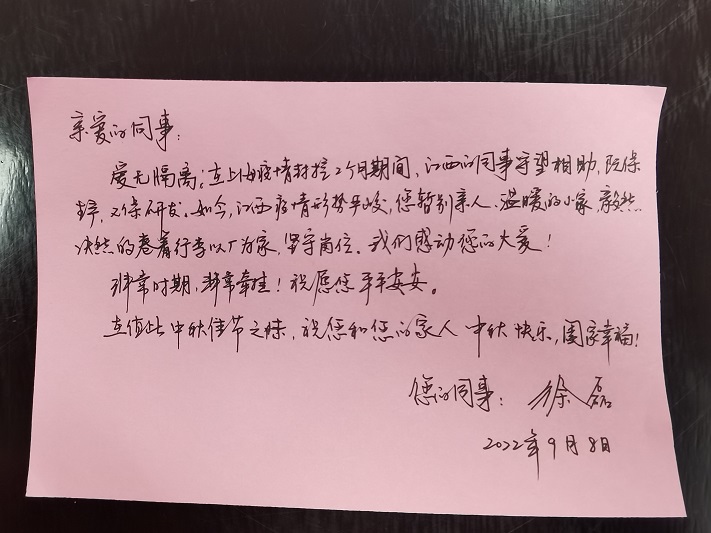 亲爱的同事：
爱无隔离；在上海疫情封控2个月期间，江西的同事守望相助，既保
持，又保研发。如今，江西疫情形势严峻，您暂别亲人、温暖的小家，毅然
决然的卷着行李以厂为家，坚守岗位。我们感动您的大爱！
非常时期，非常牵挂！祝愿您平平安安。
在值此中秋佳节之际，祝您和您的家人 中秋快乐，阖家幸福！
您的同事：徐磊
2022年9月8日